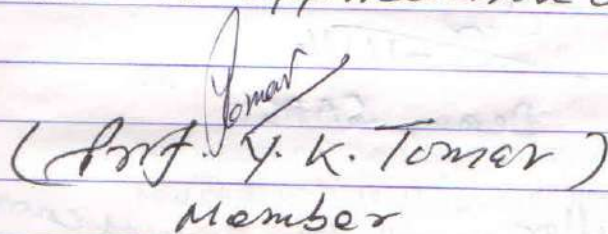 Tomar
(Prof. Y. K. Tomar)
Member